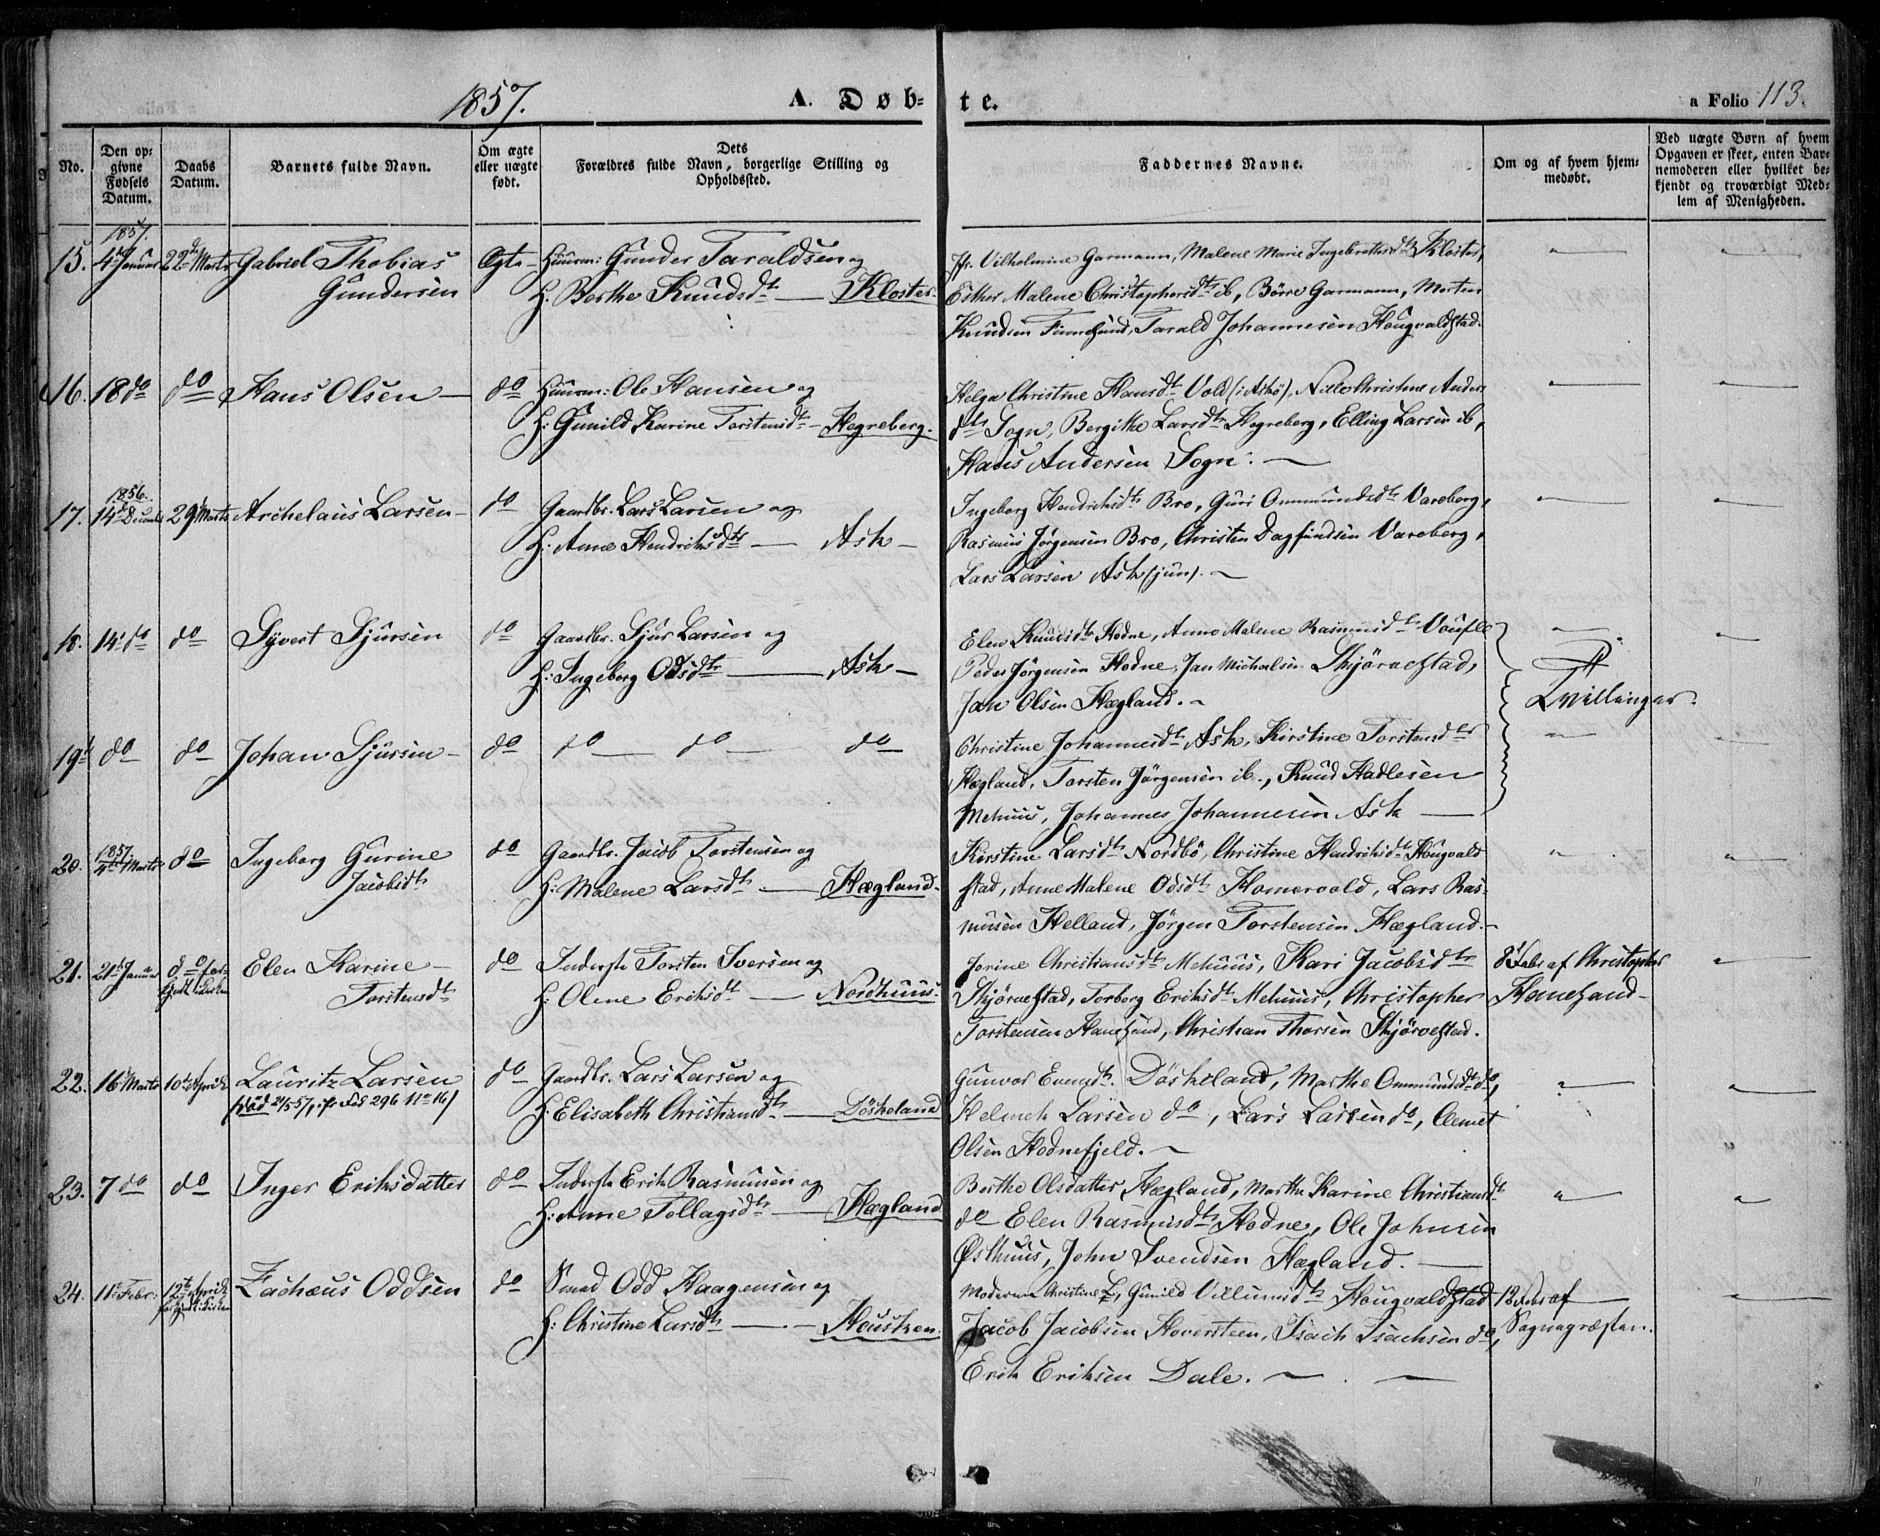 1857.
A. Døb-
te.
a Folio 113.
No.
Den op-
givne
Fødsels
Datum.
Daabs
Datum.
Barnets fulde Navn.
Om ægte
eller uægte
født.
Dets
Forældres fulde Navn, borgerlige Stilling og
Opholdssted.
Faddernes Navne.
Om og af hvem hjem-
medøbt.
Ved uægte Børn af hvem
Opgaven er skeet, enten Bar-
nemoderen eller hvilket be-
kjendt og troværdigt Med-
lem af Menigheden.
1857.
15. 4de Januar 22de Marts Gabriel Thobias Ægte Huusm: Gunder Taraldsen og
Gundersen H: Berthe Knudsdtr Kloster.
Jfr. Vilhelmine Garmann, Malene Marie Ingebrethsdtr Kloster,
Esther Malene Christophersdtr ib, Börre Garmann, Morten
Knudsen Finnesand, Tarald Johannesen Hougvaldstad.
16. 18 do do Hans Olsen do Huusm: Ole Hansen og
H: Gunild Karine Torstensdtr Hegreberg.
Helga Christine Hansdtr Vold (i Askö), Nille Christine Anders
dtr Sogn, Bergithe Larsdtr Hegreberg, Elling Larsen ib,
Hans Andersen Sogn.
1856.
17. 14de Decembr 29 Marts Archelaus Larsen do Gaardbr. Lars Larsen og
H: Anne Hendriksdtr Ask
Ingeborg Hendriksdtr Bro, Guri Ommundsdtr Vareberg,
Rasmus Jørgensen Bro, Christen Dagfindsen Vareberg,
Lars Larsen Ask (jun).
18. 14 do do Syvert Sjursen do Gaardbr. Sjur Larsen og
H: Ingeborg Odsdtr Ask
Elen Knudsdtr Hodne, Anne Malene Rasmusdtr Voufle
Peder Jörgensen Hodne, Jan Michalsen Skjörvestad,
Jan Olsen Hægland.
Tvillinger.
19 do do Johan Sjursen do do do do
Christine Johannesdtr Ask, Kirstine Torstensdtr
Hægland, Torsten Jörgensen ib., Knud Hadlesen
Mehuus, Johannes Johannesen Ask
1857
20. Marts do Ingeborg Gurine do Gaardbr. Jacob Torstensen og
Jacobsdtr H: Malene Larsdtr Hægland.
Kirstine Larsdtr Nordbö, Christine Hendriksdtr Hougvald
stad, Anne Malene Odsdtr Homervold, Lars Ras-
mussen Helland, Jörgen Torstensen Hægland.
21. 21de Januar do Elen Karine do Inderste Torsten Iversen og
Torstensdtr H: Olene Eriksdtr Nordhuus.
Jorine Christiansdtr Mehuus, Kari Jacobsdtr
Skjörvestad, Torborg Eriksdtr Mehuus, Christopher
Torstensen Hanesand, Christian Thorsen Skjörvestad.
8 Febr af Christopher
Hanesand
22. 16 Marts 10de April Lauritz Larsen do Gaardbr. Lars Larsen og
H: Elisabeth Christiansdtr Döskeland
Gunvor Evensdtr Döskeland, Marthe Ommundsdtr do,
Helmich Larsen do, Lars Larsen do, Clemet
Olsen Hodnefjeld.
23. 7 do do Inger Eriksdatter do Inderste Erik Rasmusen og
H: Anne Tollagsdtr Hægland
Berthe Olsdatter Hægland, Marthe Karine Christiansdtr
do Elen Rasmusdtr Hodne, Ole Johnsen
Østhuus, John Svendsen Hægland.
24. 11 Febr: 12te April Zachæus Oddsen do Smed Odd Haagensen og
H: Christine Larsdtr Houskeen.
Moderen Christine L, Gunild Villumsdtr Hougvaldstad
Jacob Jacobsen Hoversteen, Isach Isachsen do,
Erik Eriksen Dale.
12 Febr af
Sognepræsten.